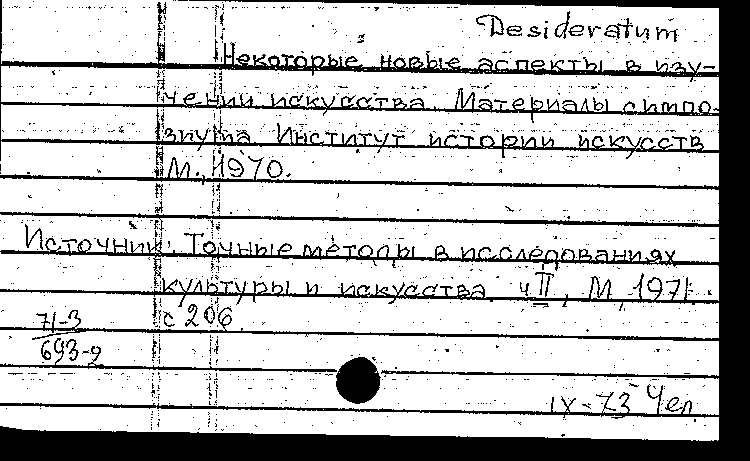 Desideratum
Некоторые новые аспекты в изу-
чении искусства. Материалы симпо-
зиума. Институт истории искусств
М., 1970.
Источник: Точные методы в исследованиях
культуры и искусства. ч II, М, 1971.
с 206.
71-3
693-2
IX-73 Чел